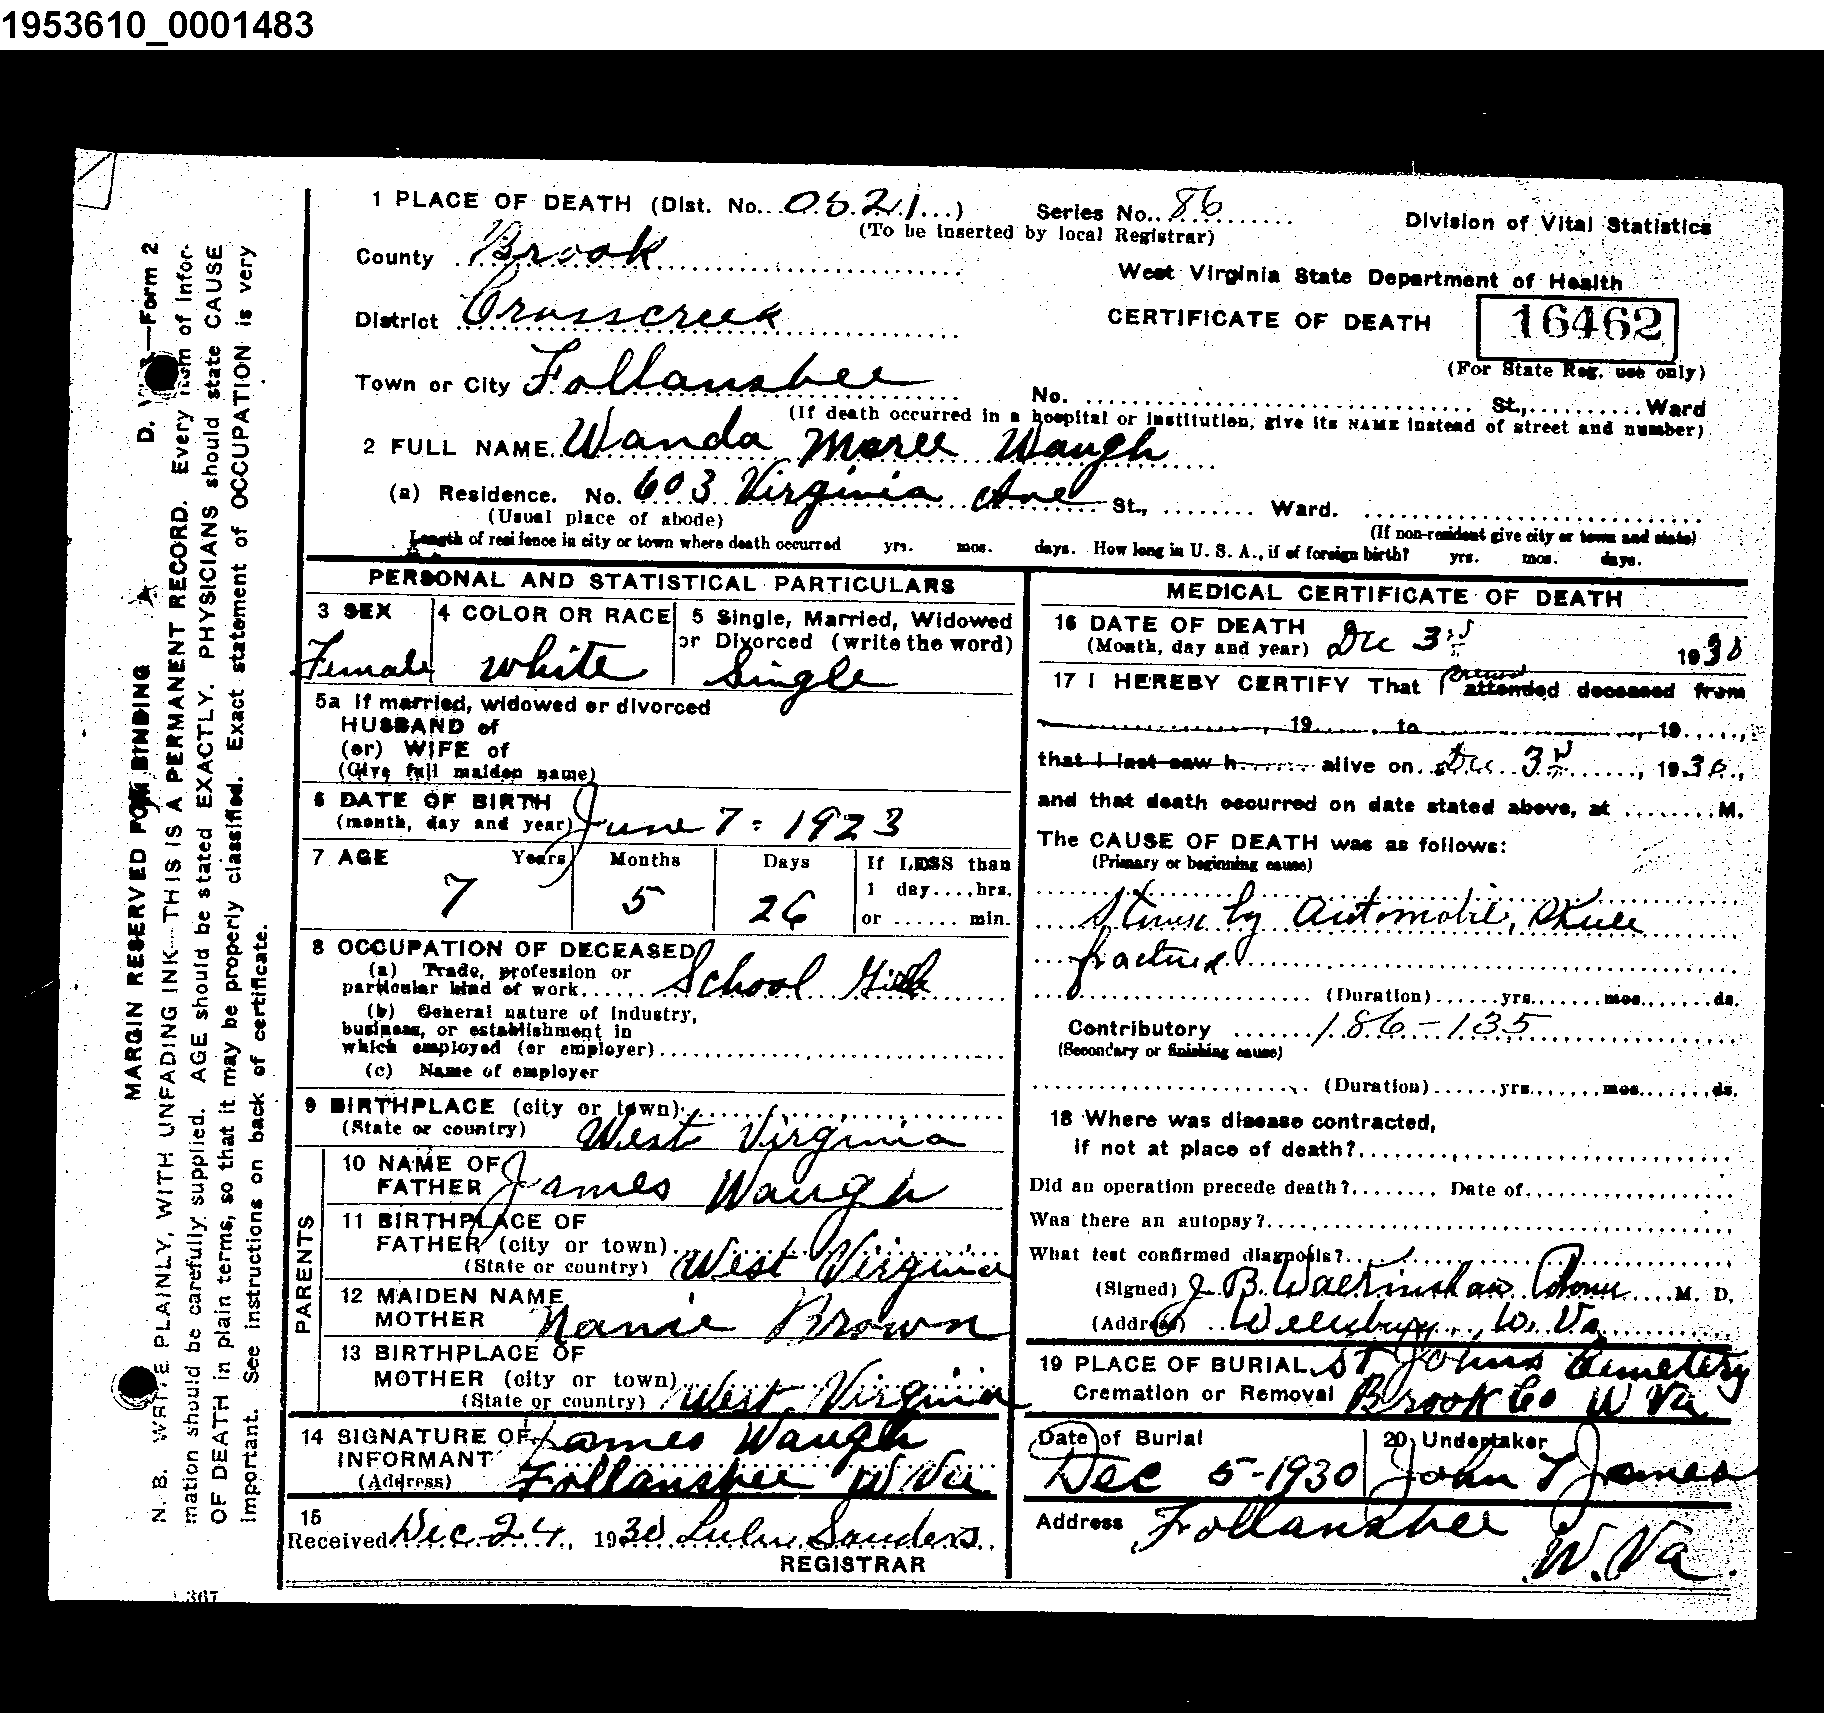 1953610_0001483
1 PLACE OF DEATH (Dist. No. 0521) Series No. 86
(To be inserted by local Registrar)
Division of Vital Statistics
County Brook
West Virginia State Department of Health
District Crosscreek
CERTIFICATE OF DEATH 16462
(For State Reg. use only)
Town or City Follansbee
No. St., Ward
(If death occurred in a hospital or institution, give its NAME instead of street and number)
2 FULL NAME Wanda Maree Waugh
(a) Residence. No. 603 Virginia Ave St., Ward.
(Usual place of abode) (If non-resident give city or town and state)
Length of residence in city or town where death occurred yrs. mos. days. How long in U. S. A., if of foreign birth? yrs. mos. days.
PERSONAL AND STATISTICAL PARTICULARS
3 SEX 4 COLOR OR RACE 5 Single, Married, Widowed
or Divorced (write the word)
Female white Single
5a If married, widowed or divorced
HUSBAND of
(or) WIFE of
(Give full maiden name)
6 DATE OF BIRTH
(month, day and year) June 7 - 1923
7 AGE Years Months Days If LESS than
1 day....hrs.
7 5 26
or ...... min.
8 OCCUPATION OF DECEASED
(a) Trade, profession or
particular kind of work School Girl
(b) General nature of Industry,
business, or establishment in
which employed (or employer)
(c) Name of employer
9 BIRTHPLACE (city or town)
(State or country) West Virginia
PARENTS
10 NAME OF
FATHER James Waugh
11 BIRTHPLACE OF
FATHER (city or town)
(State or country) West Virginia
12 MAIDEN NAME
MOTHER Nanie Brown
13 BIRTHPLACE OF
MOTHER (city or town)
(State or country) West Virginia
14 SIGNATURE OF James Waugh
INFORMANT
(Address) Follansbee W Va
15
Received Dec 24, 1930 Lulu Sanders
REGISTRAR
MEDICAL CERTIFICATE OF DEATH
16 DATE OF DEATH
(Month, day and year) Dec 3rd 1930
17 I HEREBY CERTIFY That I viewed attended deceased from
, 19 , to , 19 ,
that I last saw h alive on Dec 3rd, 1930,
and that death occurred on date stated above, at M.
The CAUSE OF DEATH was as follows:
(Primary or beginning cause)
Struck by Automobile, Skull
fractured
(Duration) yrs. mos. ds.
Contributory 186-135
(Secondary or finishing cause)
(Duration) yrs. mos. ds.
18 Where was disease contracted,
if not at place of death?
Did an operation precede death? Date of
Was there an autopsy?
What test confirmed diagnosis?
(Signed) J. B. Walkinshaw M. D.
(Address) Wellsburg, W. Va
19 PLACE OF BURIAL St Johns Cemetery
Cremation or Removal Brook Co W Va
Date of Burial 20 Undertaker
Dec 5-1930 John T James
Address Follansbee
W. Va.
D. —Form 2
MARGIN RESERVED FOR BINDING
N. B. WRITE PLAINLY, WITH UNFADING INK—THIS IS A PERMANENT RECORD. Every item of infor-
mation should be carefully supplied. AGE should be stated EXACTLY. PHYSICIANS should state CAUSE
OF DEATH in plain terms, so that it may be properly classified. Exact statement of OCCUPATION is very
important. See instructions on back of certificate.
307